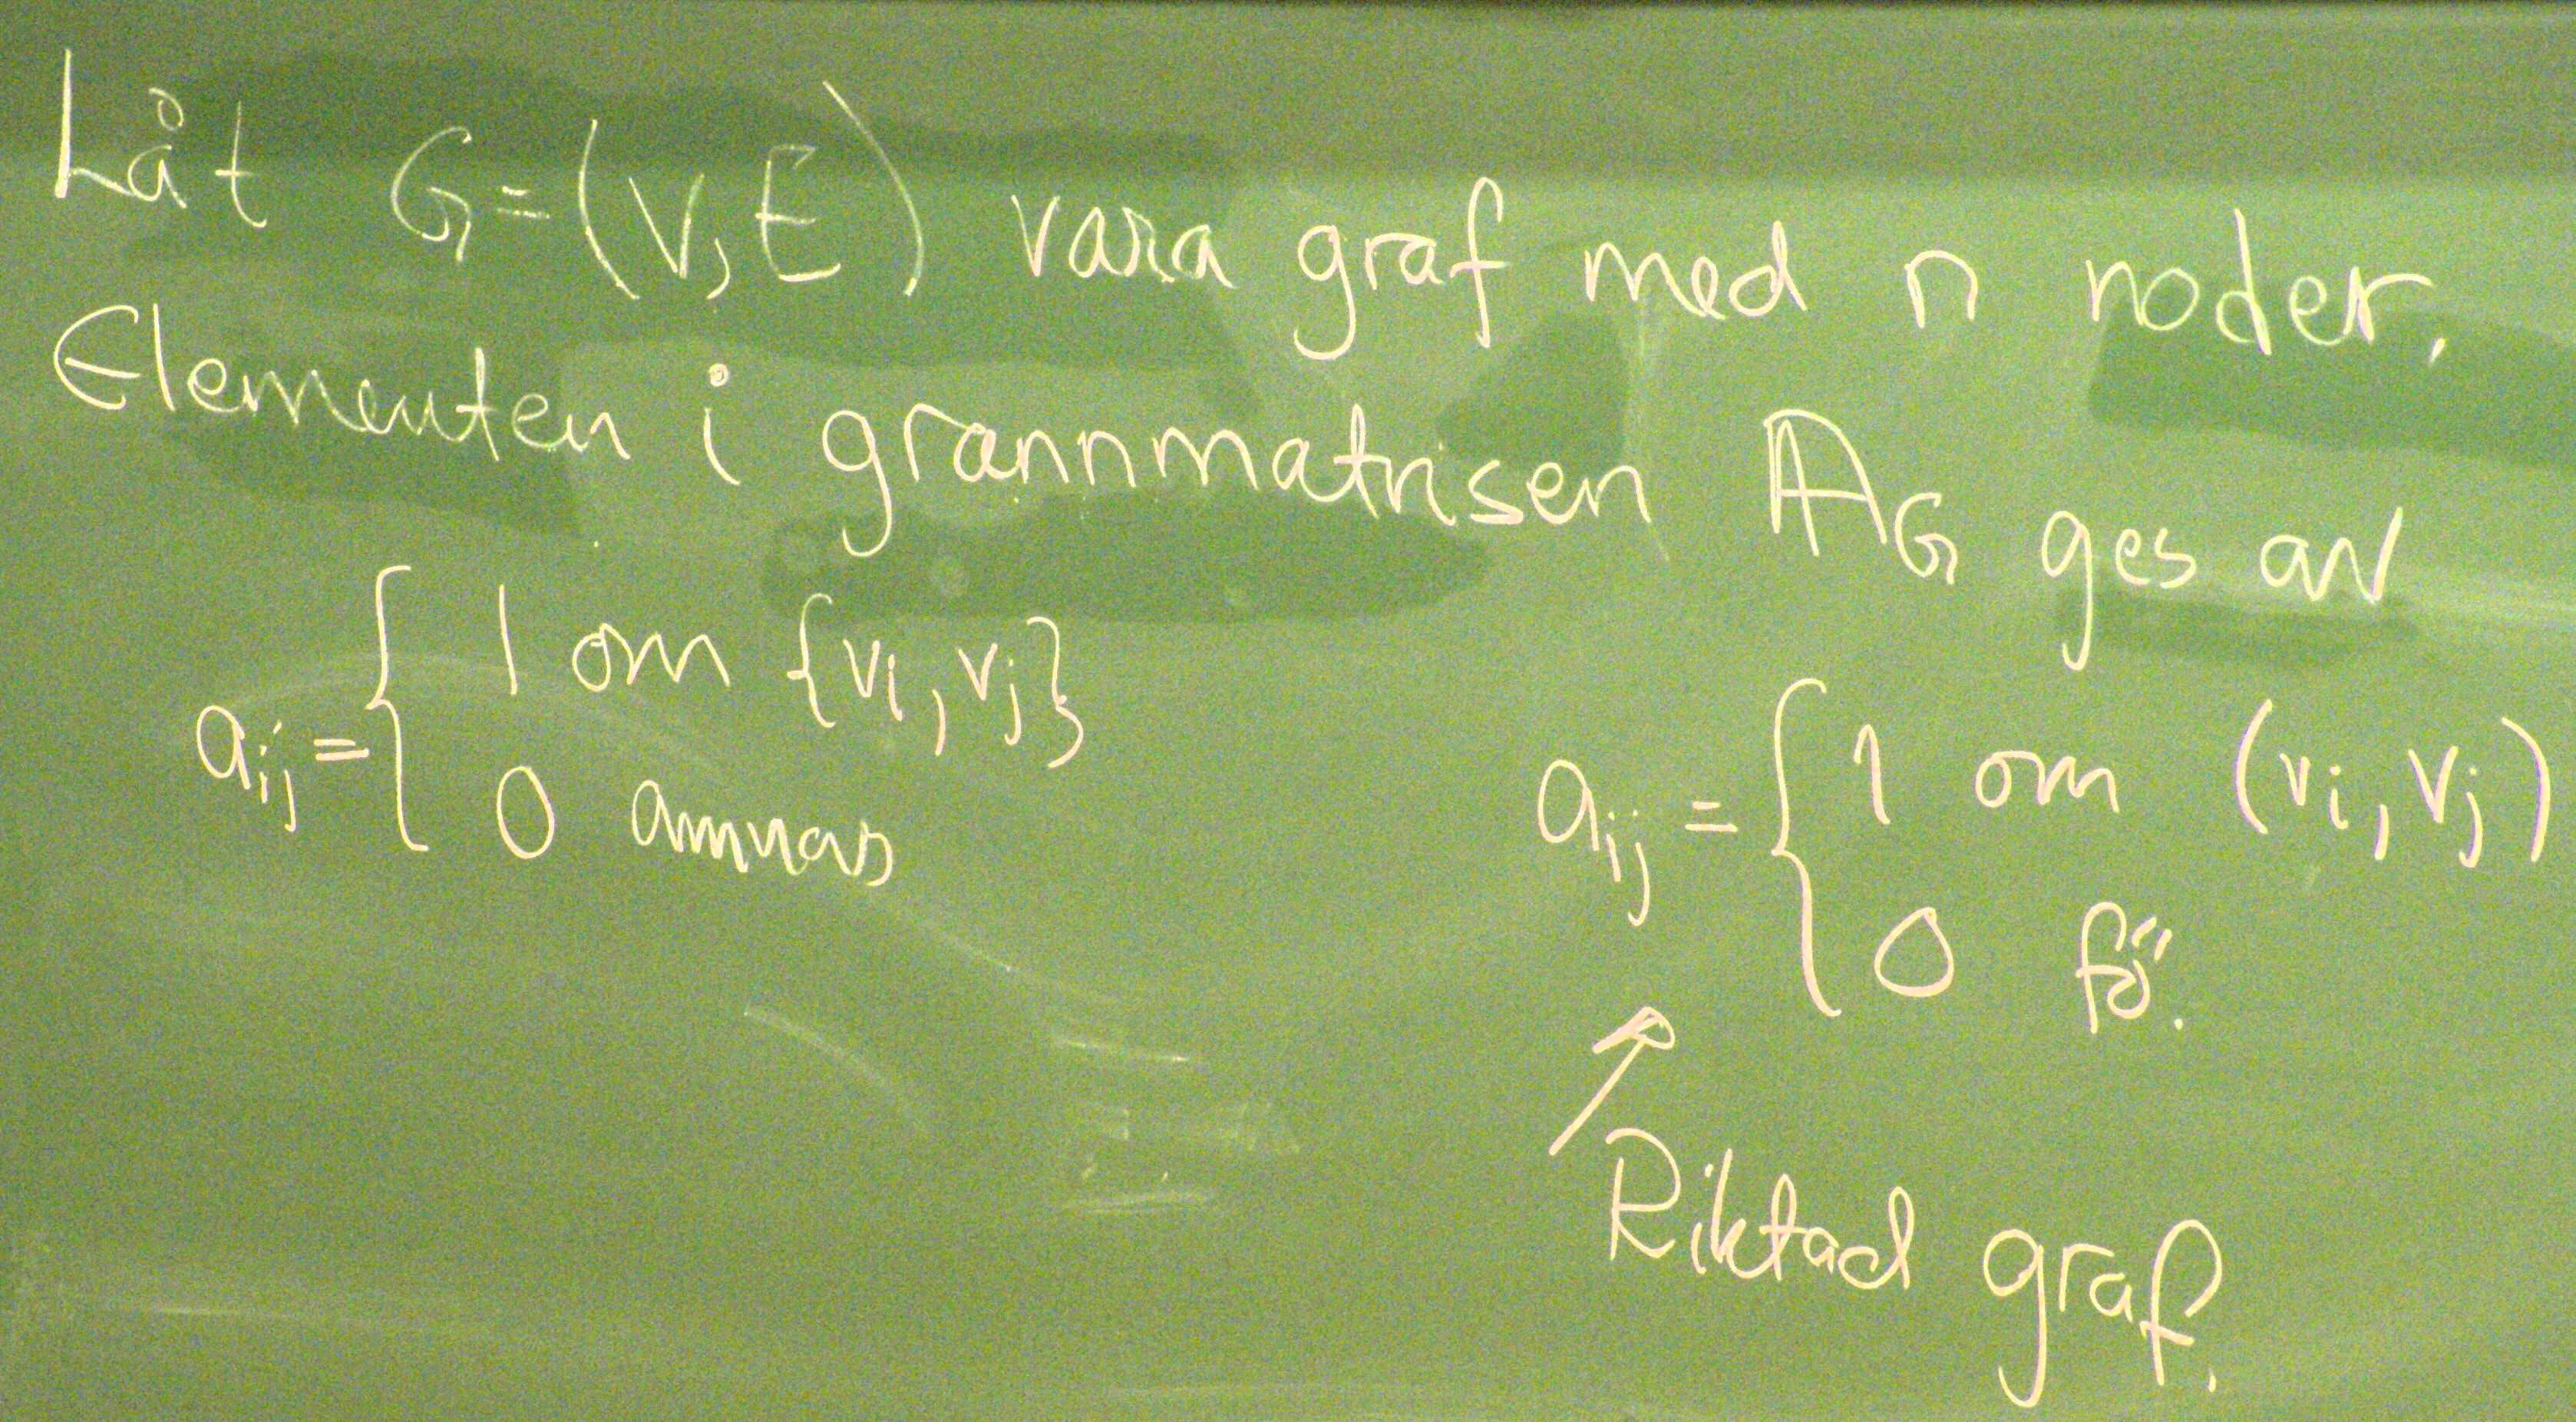 Låt G=(V,E) vara graf med n noder.
Elementen i grannmatrisen A_G ges av
a_ij = { 1 om {v_i, v_j}
0 annars
a_ij = { 1 om (v_i, v_j)
0 fö.
Riktad graf.